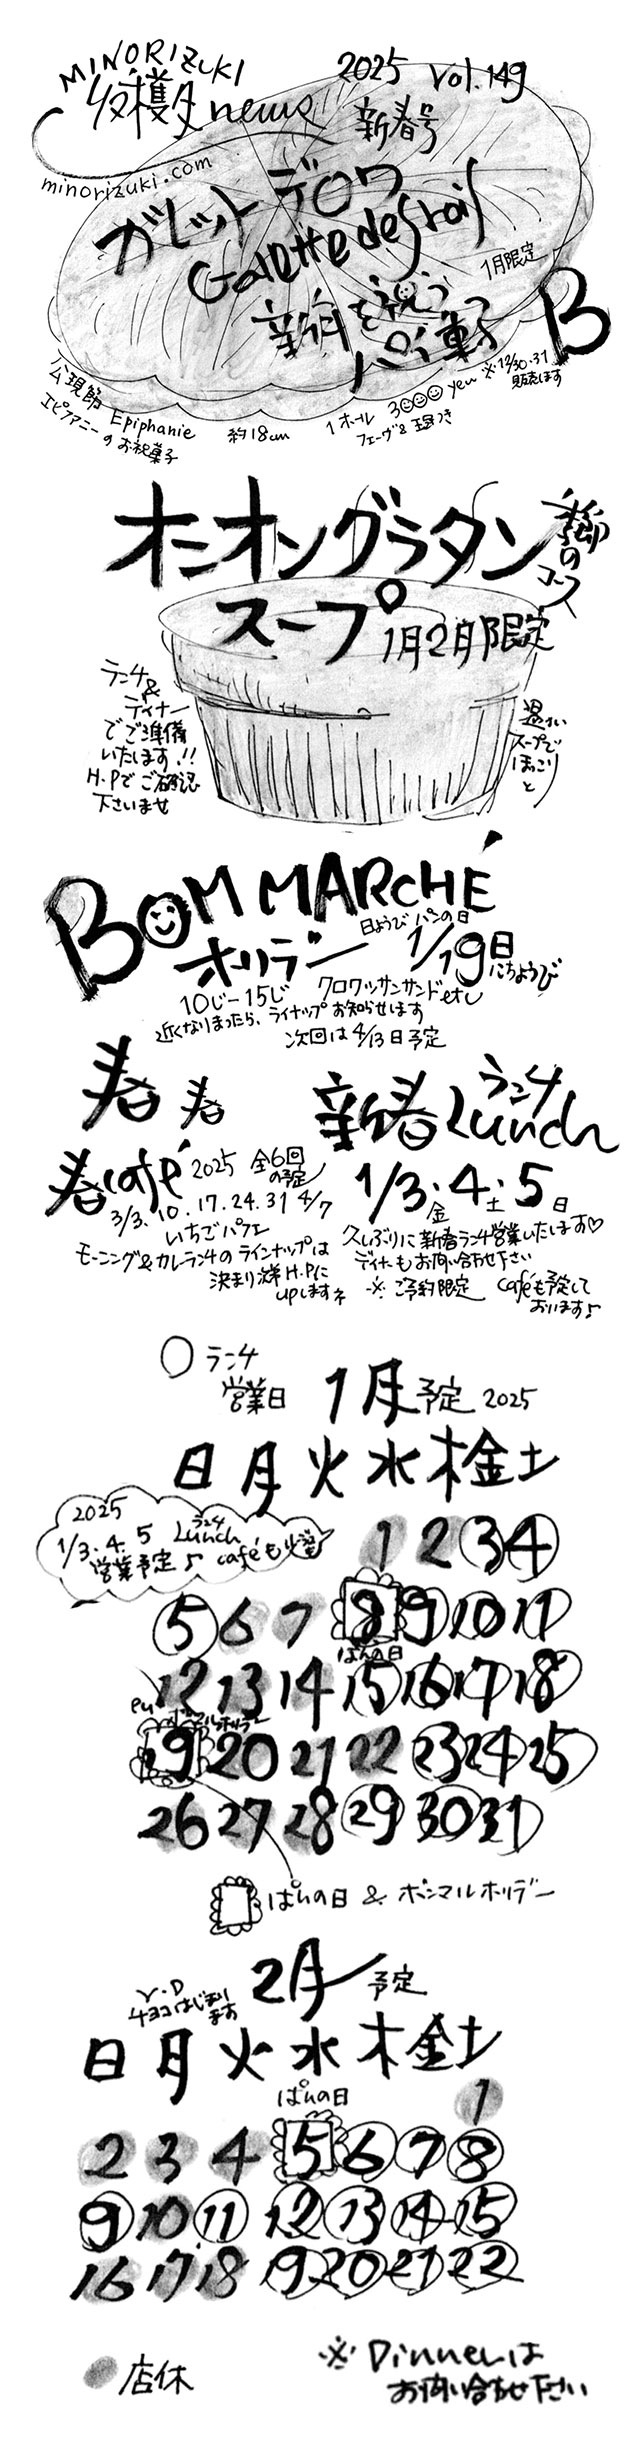 MINORIZUKI
収穫月 news
2025 Vol.149
新春号
minorizuki.com
ガレット デロワ
Galette des rois
1月限定
新年を祝う
パイ菓子
公現節 Epiphanie
エピファニーのお祝菓子
約18cm
1ホール 3000 yen ※12/30.31
販売します
フェーヴ&王冠つき
オニオングラタン
スープ
1月2月限定
季節の
コース
ランチ
&
ディナー
でご準備
いたします!!
H.Pでご確認
下さいませ
温かい
スープで
ほっこり
と
BOM MARCHÉ
ホリデー
日ようび パンの日
1/19日
にちようび
10じ-15じ クロワッサンサンドetc
近くなりまったら、ラインナップ お知らせします
次回は4/13日予定
春 春
春café 2025 全6回
の予定
3/3.10.17.24.31 4/7
いちごパフェ
モーニング&カレランチのラインナップは
決まり次第H.Pに
upします
新春 ランチ
Lunch
1/3.4.5
金 土 日
久しぶりに新春ランチ営業いたします♡
ディナーもお問い合わせ下さい
※ご予約限定 caféも予定して
おります♪
○ ランチ
営業日
1月予定 2025
日 月 火 水 木 金 土
2025
1/3.4.5 ランチ
Lunch
営業予定♪ caféも
1 2 3 4
5 6 7 8 9 10 11
ぱんの日
12 13 14 15 16 17 18
ボンマルホリデー
19 20 21 22 23 24 25
26 27 28 29 30 31
ぱんの日 & ボンマルホリデー
2月 予定
V.D
チョコはじまり
ます
日 月 火 水 木 金 土
ぱんの日
1
2 3 4 5 6 7 8
9 10 11 12 13 14 15
16 17 18 19 20 21 22
店休
※Dinnerは
お問い合わせ下さい